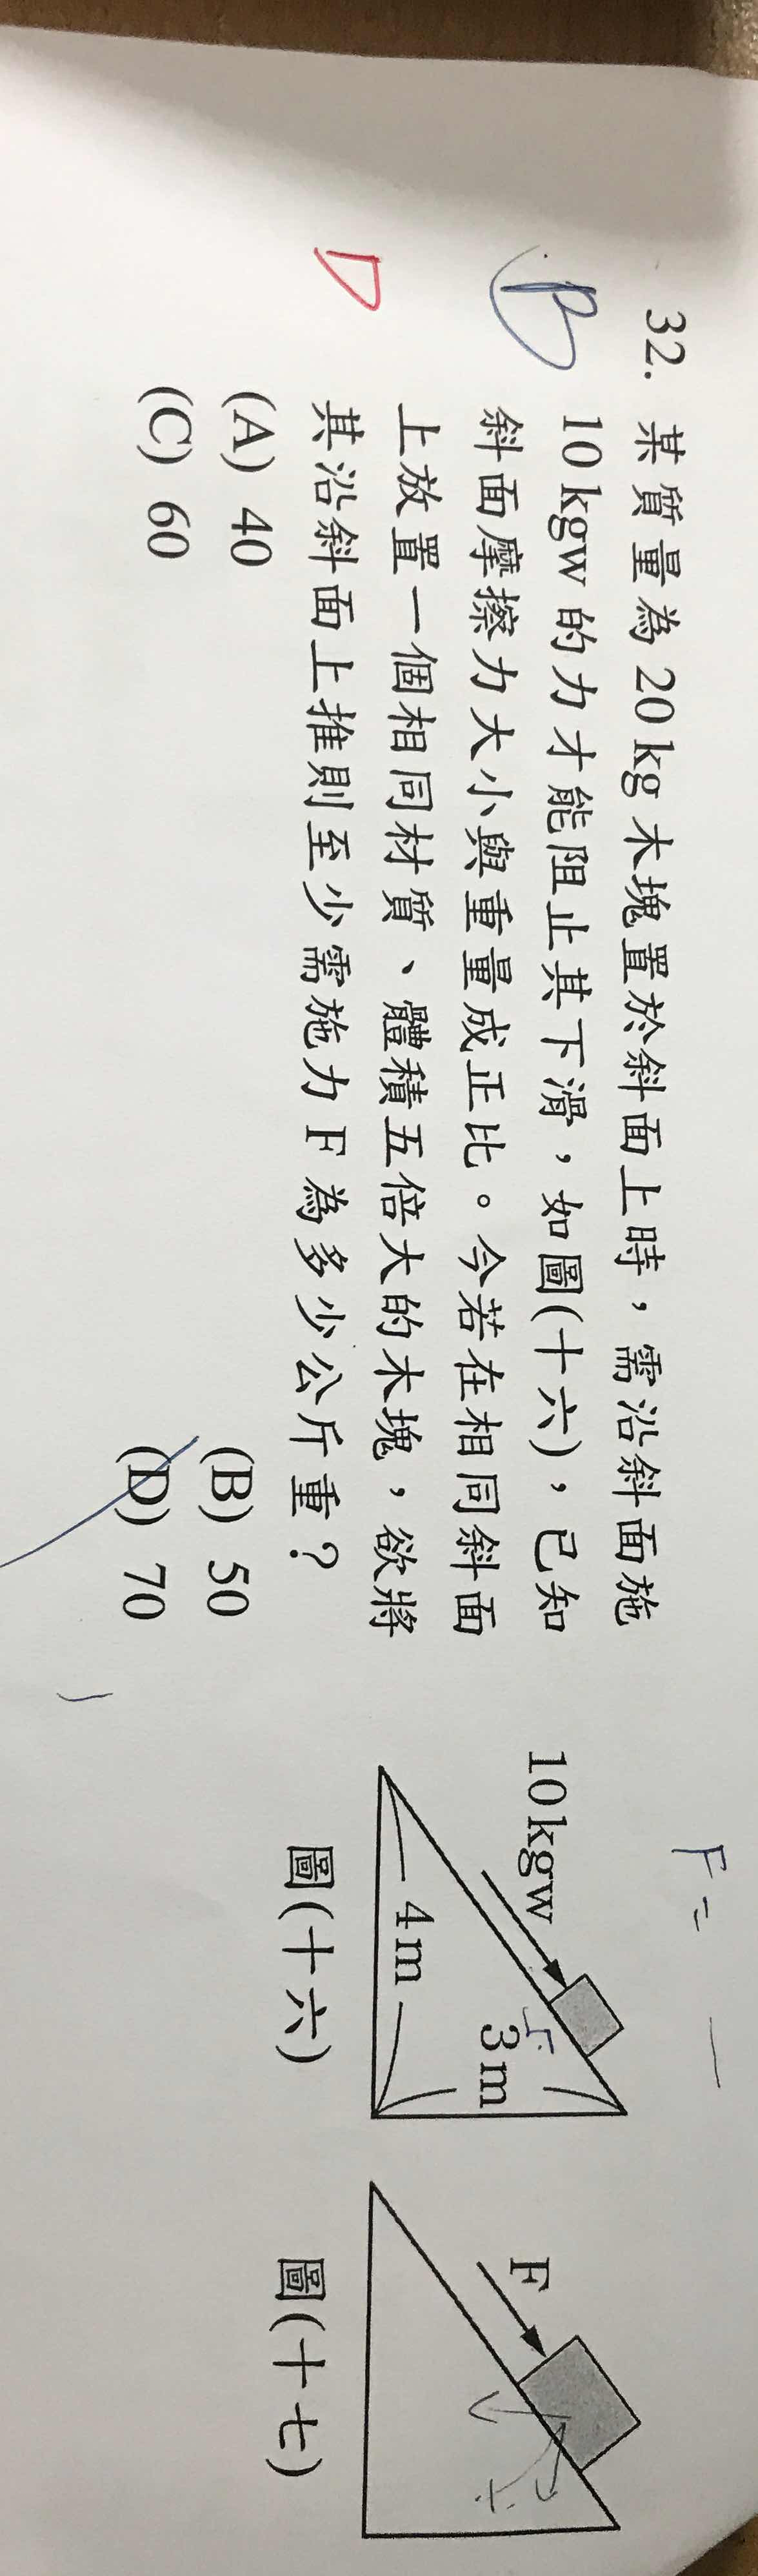 32. 某質量為20kg木塊置於斜面上時，需沿斜面施
10kgw的力才能阻止其下滑，如圖(十六)，已知
斜面摩擦力大小與重量成正比。今若在相同斜面
上放置一個相同材質、體積五倍大的木塊，欲將
其沿斜面上推則至少需施力F為多少公斤重？
(A) 40
(B) 50
(C) 60
(D) 70
B
D
F=
10kgw
3m
5
4m
圖(十六)
F
圖(十七)